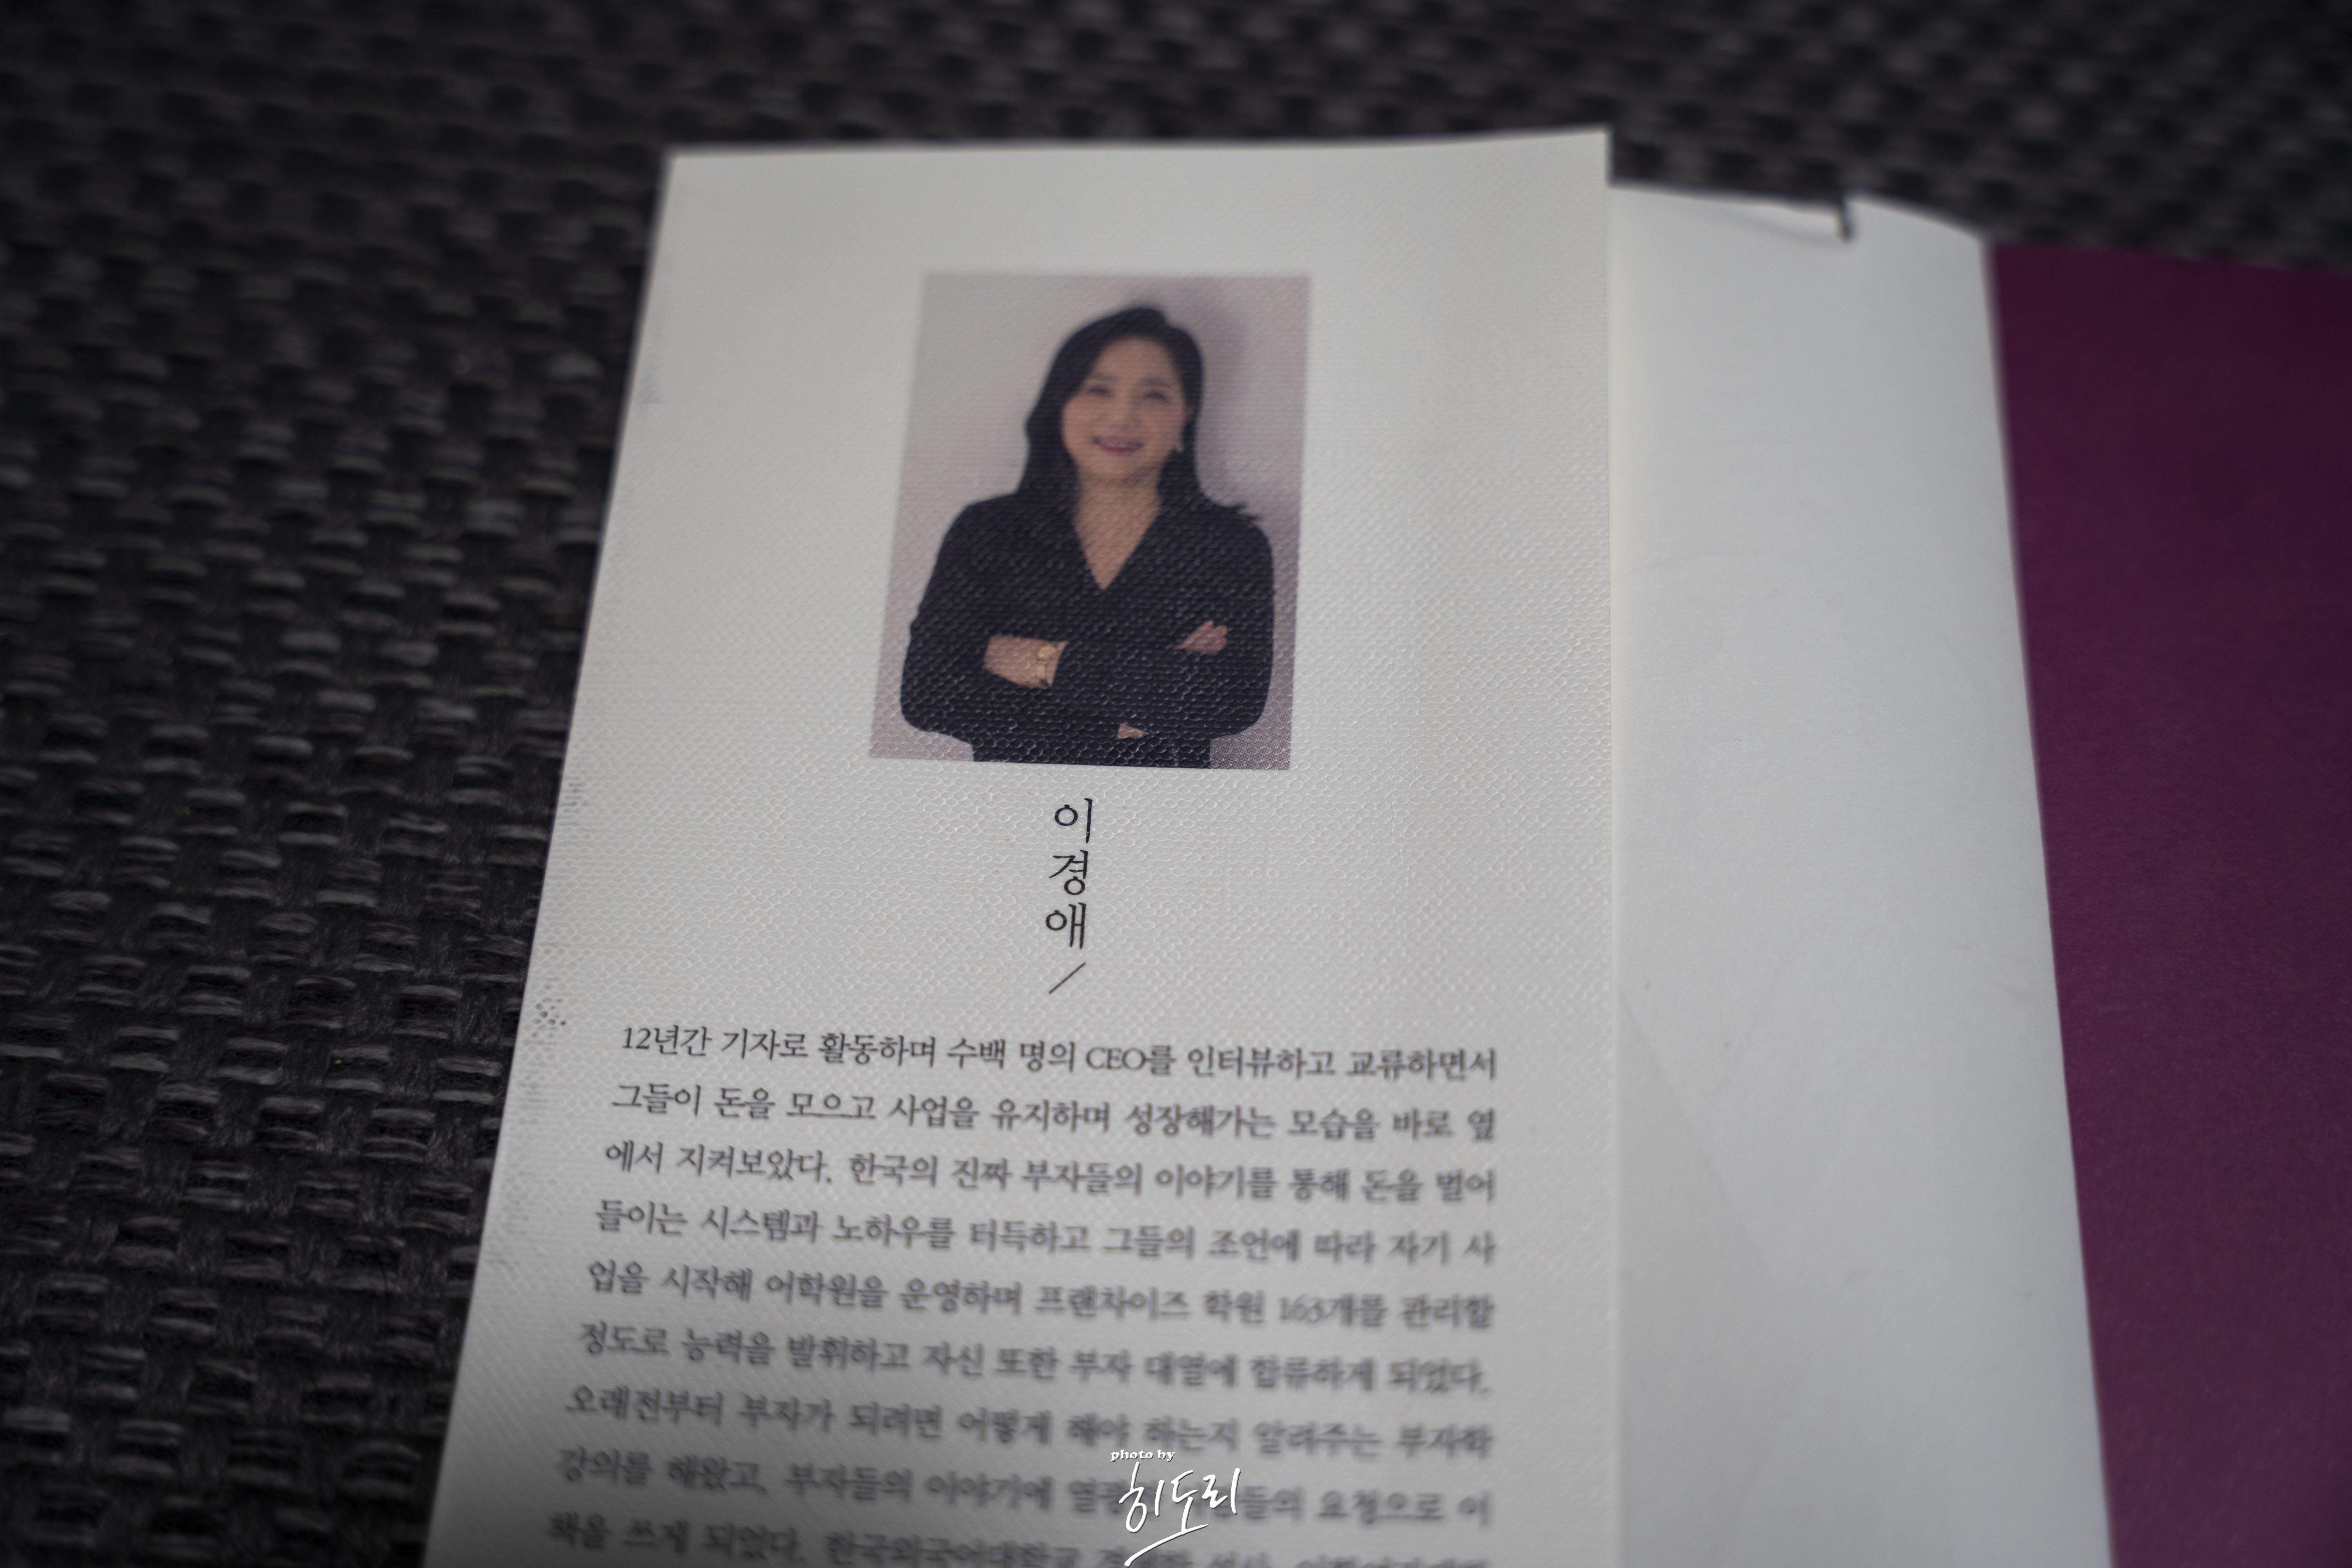 이경애
12년간 기자로 활동하며 수백 명의 CEO를 인터뷰하고 교류하면서
그들이 돈을 모으고 사업을 유지하며 성장해가는 모습을 바로 옆
에서 지켜보았다. 한국의 진짜 부자들의 이야기를 통해 돈을 벌어
들이는 시스템과 노하우를 터득하고 그들의 조언에 따라 자기 사
업을 시작해 어학원을 운영하며 프랜차이즈 학원 163개를 관리할
정도로 능력을 발휘하고 자신 또한 부자 대열에 합류하게 되었다.
오래전부터 부자가 되려면 어떻게 해야 하는지 알려주는 부자학
강의를 해왔고, 부자들의 이야기에 요청으로 이
책을 쓰게 되었다. 한국외국어대학교
photo by
히도리